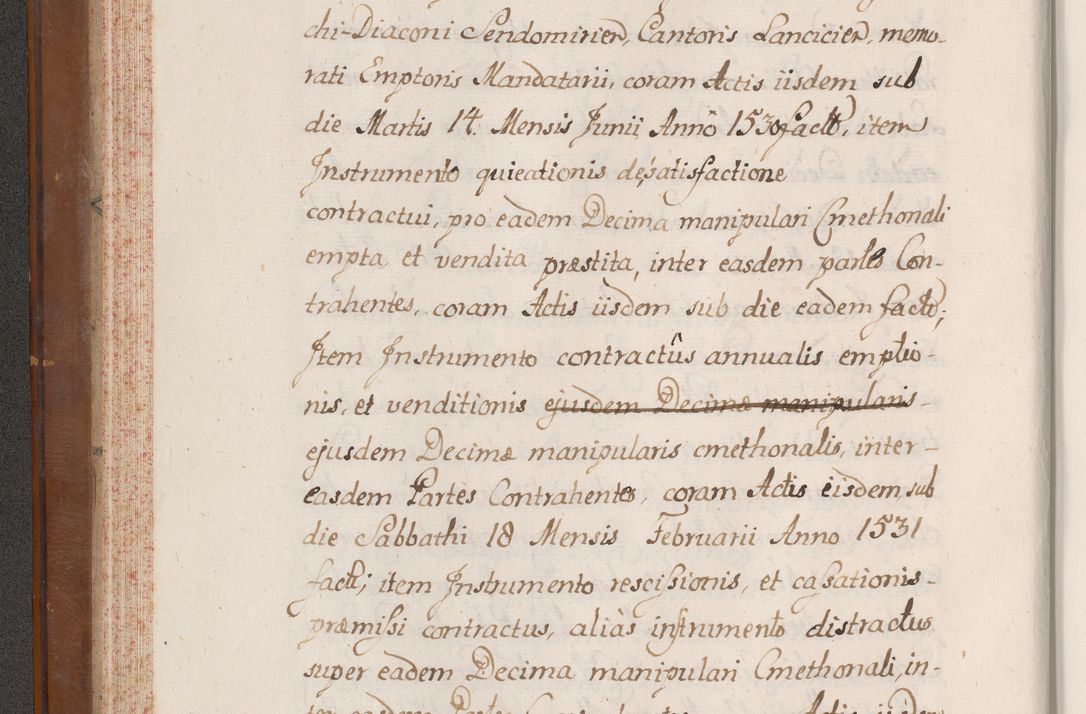 chi-Diaconi Sendomirien, Cantoris Lancicien, memo-
rati Emptoris Mandatarii, coram Actis iisdem sub
die Martis 14 Mensis Junii Annô 1530 facto, item
Instrumento quieationis de satisfactione
contractui, pro eadem Decima manipulari Cmethonali
empta et vendita præstita, inter easdem partes Con-
trahentes, coram Actis iisdem sub die eadem facto;
Item Instrumento contractûs annualis emptio-
nis, et venditionis ejusdem Decimæ manipularis
ejusdem Decimæ manipularis cmethonalis, inter-
easdem Partes Contrahentes, coram Actis eisdem, sub
die Sabbathi 18 Mensis Februarii Anno 1531
facti; item Instrumento rescissionis, et cassationis-
præmissi contractus, aliàs instrumento distractus
super eadem Decima manipulari Cmethonali, in-
ter easdem Partes Actis iisdem